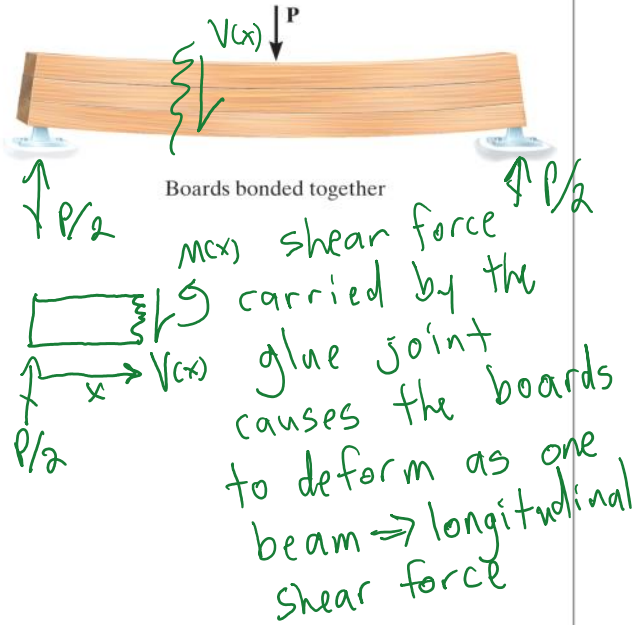 V(x)
P
Boards bonded together
P/2
P/2
M(x)
V(x)
x
P/2
shear force
carried by the
glue joint
causes the boards
to deform as one
beam => longitudinal
shear force